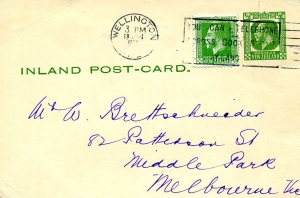 WELLINGTON
3 PM
YOU CAN TELEPHONE
INLAND POST-CARD.
Mr W. Brettschneider
82 Patterson St
Middle Park
Melbourne Vic